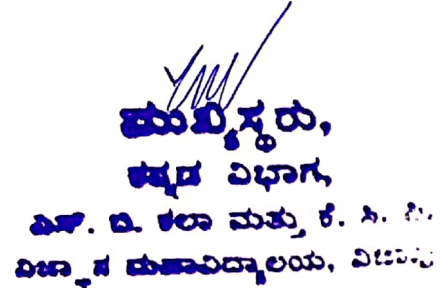 ಮುಖ್ಯಸ್ಥರು,
ಕನ್ನಡ ವಿಭಾಗ,
ಎಸ್. ಬಿ. ಕಲಾ ಮತ್ತು ಕೆ. ಸಿ. ಪಿ.
ವಿಜ್ಞಾನ ಮಹಾವಿದ್ಯಾಲಯ,